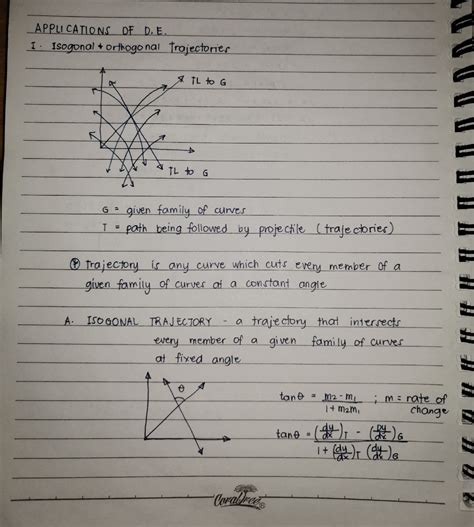 APPLICATIONS OF D.E.
I. Isogonal + orthogonal Trajectories
α
TL to G
TL to G
G = given family of curves
T = path being followed by projectile (trajectories)
Trajectory is any curve which cuts every member of a
given family of curves at a constant angle
A. ISOGONAL TRAJECTORY - a trajectory that intersects
every member of a given family of curves
at fixed angle
θ
tanθ = m2 - m1 / 1 + m2m1 ; m = rate of change
tanθ = (dy/dx)T - (dy/dx)G / 1 + (dy/dx)T (dy/dx)G
CoraDree